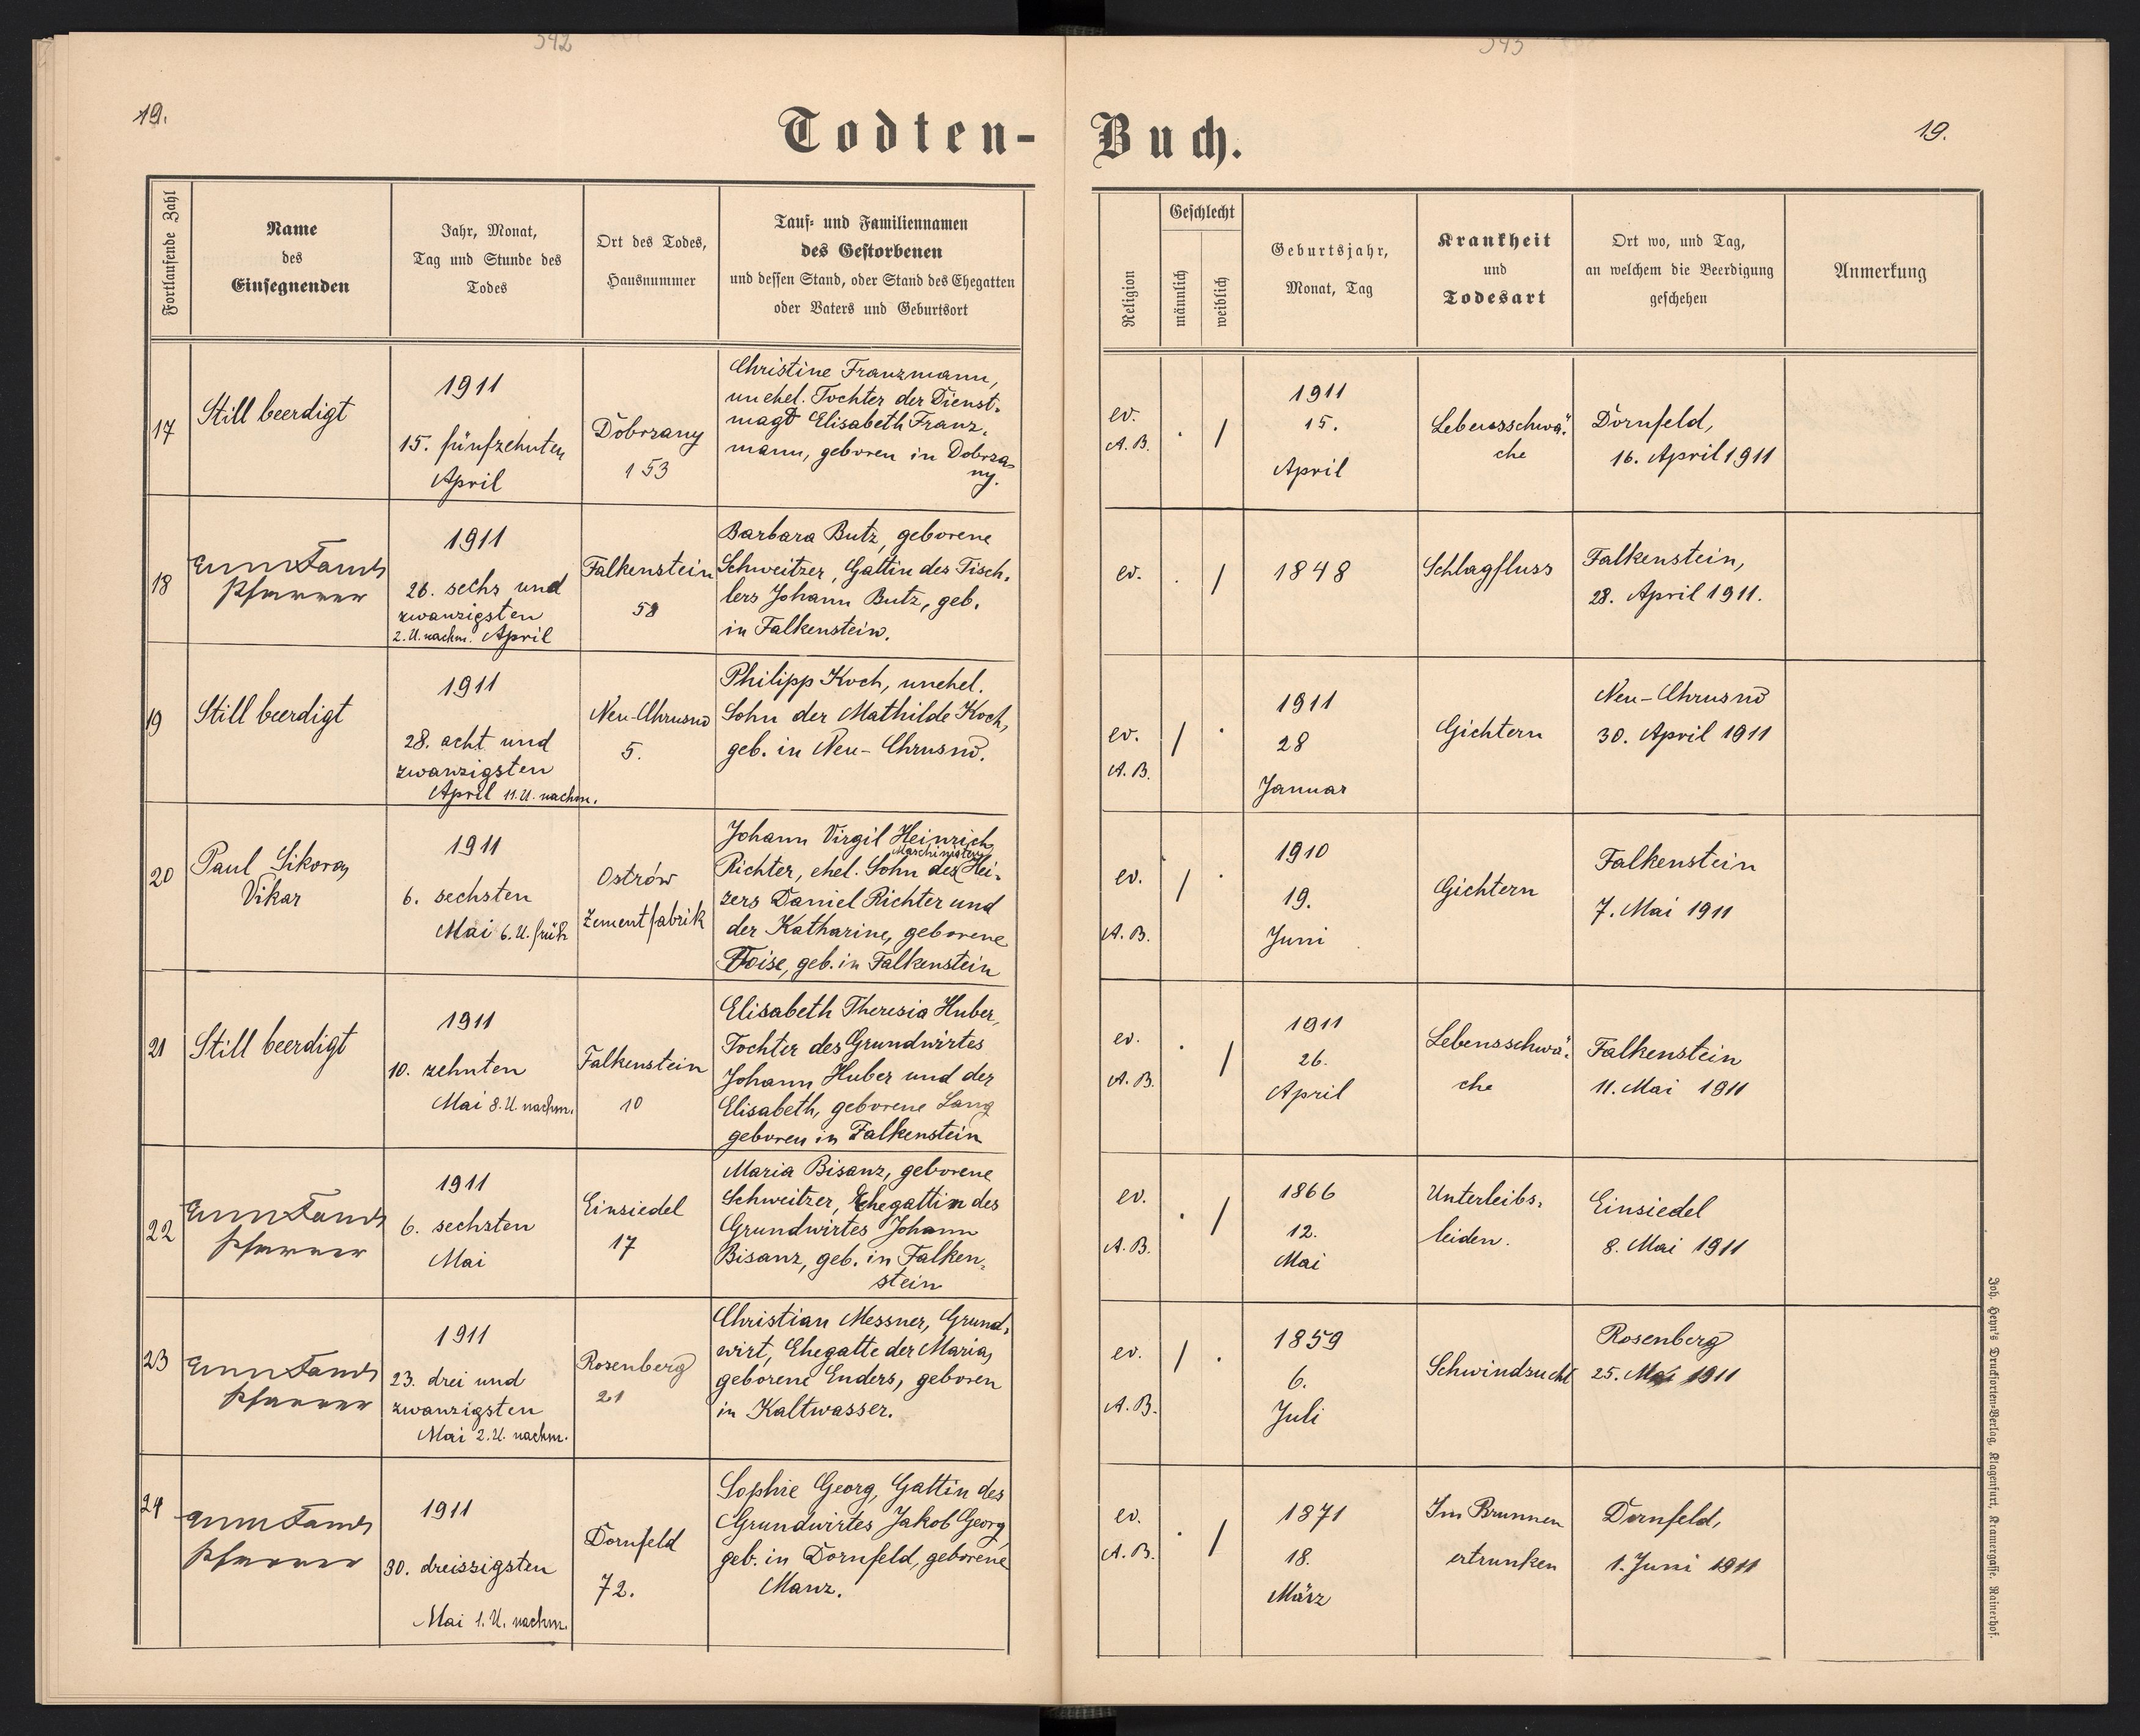 542
543
19.
19.
Todten-
Buch.
Fortlaufende Zahl
Name
des
Einsegnenden
Jahr, Monat,
Tag und Stunde des
Todes
Ort des Todes,
Hausnummer
Tauf- und Familiennamen
des Gestorbenen
und dessen Stand, oder Stand des Ehegatten
oder Vaters und Geburtsort
Religion
Geschlecht
männlich
weiblich
Geburtsjahr,
Monat, Tag
Krankheit
und
Todesart
Ort wo, und Tag,
an welchem die Beerdigung
geschehen
Anmerkung
17
Still beerdigt
1911
15. fünfzehnten
April
Dobrzany
153
Christine Franzmann,
unehel. Tochter der Dienst-
magd Elisabeth Franz-
mann, geboren in Dobrza-
ny.
ev.
A. B.
. /
1911
15.
April
Lebensschwä-
che
Dornfeld,
16. April 1911
18
Pfarrer
1911
26. sechs und
zwanzigsten
2. U. nachm. April
Falkenstein
58
Barbara Butz, geborene
Schweitzer, Gattin des Tisch-
lers Johann Butz, geb.
in Falkenstein.
ev.
. /
1848
Schlagfluss
Falkenstein,
28. April 1911.
19
Still beerdigt
1911
28. acht und
zwanzigsten
April 11. U. nachm.
Neu-Chrusno
5.
Philipp Koch, unehel.
Sohn der Mathilde Koch,
geb. in Neu-Chrusno.
ev.
A. B.
/ .
1911
28
Januar
Gichtern
Neu-Chrusno
30. April 1911
20
Paul Sikora,
Vikar
1911
6. sechsten
Mai 6. U. früh
Ostrów
Zementfabrik
Johann Virgil Heinrich
Maschinisten
Richter, ehel. Sohn des Hei-
zers Daniel Richter und
der Katharine, geborene
Foise, geb. in Falkenstein
ev.
A. B.
/ .
1910
19.
Juni
Gichtern
Falkenstein
7. Mai 1911
21
Still beerdigt
1911
10. zehnten
Mai 8. U. nachm.
Falkenstein
10
Elisabeth Theresia Huber,
Tochter des Grundwirtes
Johann Huber und der
Elisabeth, geborene Lang
geboren in Falkenstein
ev.
A. B.
. /
1911
26.
April
Lebensschwä-
che
Falkenstein
11. Mai 1911
22
Pfarrer
1911
6. sechsten
Mai
Einsiedel
17
Maria Bisanz, geborene
Schweitzer, Ehegattin des
Grundwirtes Johann
Bisanz, geb. in Falken-
stein
ev.
A. B.
. /
1866
12.
Mai
Unterleibs-
leiden.
Einsiedel
8. Mai 1911
23
Pfarrer
1911
23. drei und
zwanzigsten
Mai 2. U. nachm.
Rosenberg
21
Christian Messner, Grund-
wirt, Ehegatte der Maria,
geborene Enders, geboren
in Kaltwasser.
ev.
A. B.
/ .
1859
6.
Juli
Schwindsucht
Rosenberg
25. Mai 1911
24
Pfarrer
1911
30. dreissigsten
Mai 1. U. nachm.
Dornfeld
72.
Sophie Georg, Gattin des
Grundwirtes Jakob Georg,
geb. in Dornfeld, geborene
Manz.
ev.
A. B.
. /
1871
18.
März
Im Brunnen
ertrunken
Dornfeld,
1. Juni 1911
Joh. Heyn's Drucksorten-Verlag, Klagenfurt, Kramergasse, Rainerhof.